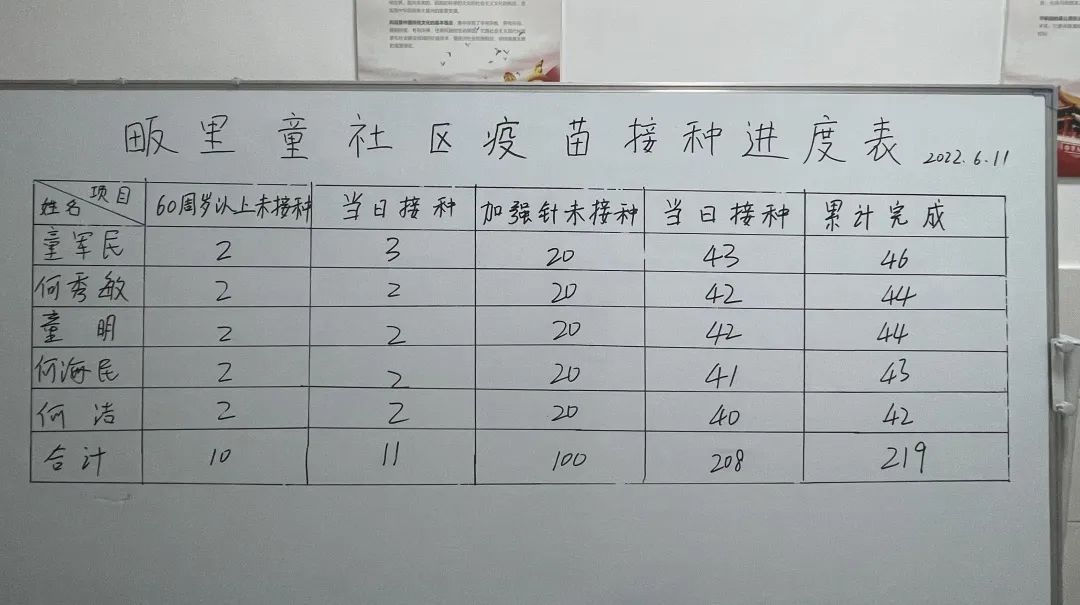 畈里童社区疫苗接种进度表 2022.6.11
项目 姓名 60周岁以上未接种 当日接种 加强针未接种 当日接种 累计完成
童军民 2 3 20 43 46
何秀敏 2 2 20 42 44
童明 2 2 20 42 44
何海民 2 2 20 41 43
何洁 2 2 20 40 42
合计 10 11 100 208 219